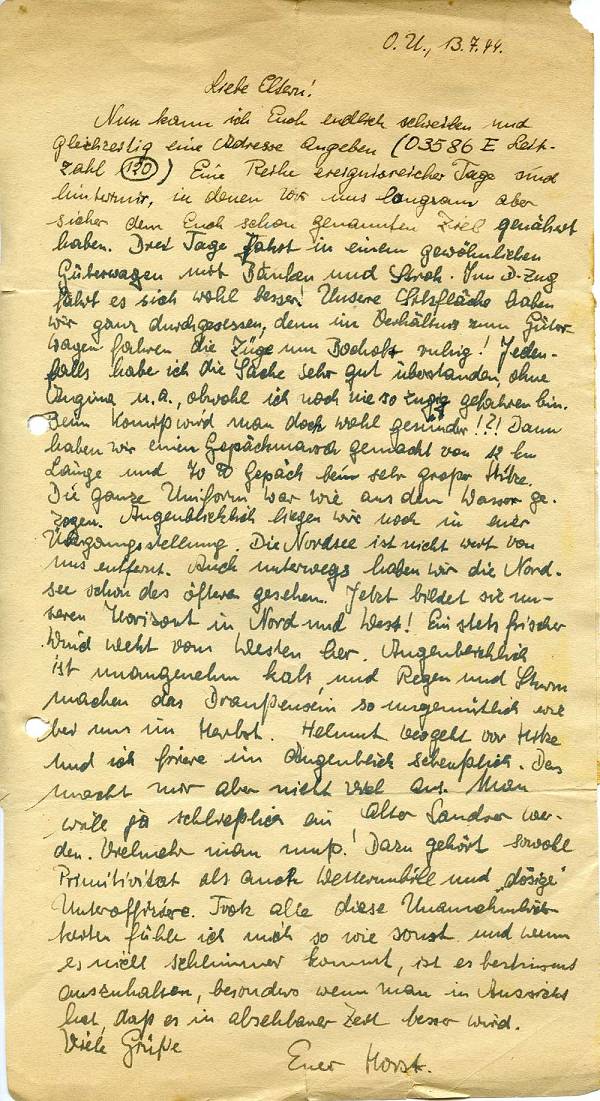 O.U., 13.7.44.
Liebe Eltern!
Nun kann ich Euch endlich schreiben und
gleichzeitig eine Adresse angeben (03586 E Leit-
zahl 120) Eine Reihe ereignisreicher Tage sind
hinter mir, in denen wir uns langsam aber
sicher dem Euch schon genannten Ziel genähert
haben. Drei Tage Fahrt in einem gewöhnlichen
Güterwagen mit Bänken und Stroh. Im D-Zug
fährt es sich wohl besser! Unsere Sitzfläche haben
wir ganz durchgesessen, denn im Verhältnis zum Güter-
wagen fahren die Züge um Bocholt ruhig! Jeden-
falls habe ich die Sache sehr gut überstanden, ohne
Angina u.a., obwohl ich noch nie so zugig gefahren bin.
Beim Komiß wird man doch wohl gesünder!?! Dann
haben wir einen Gepäckmarsch gemacht von 12 km
Länge und 70 ℔ Gepäck bei sehr großer Hitze.
Die ganze Uniform war wie aus dem Wasser ge-
zogen. Augenblicklich liegen wir noch in einer
Übergangsstellung. Die Nordsee ist nicht weit von
uns entfernt. Auch unterwegs haben wir die Nord-
see schon des öfteren gesehen. Jetzt bildet sie un-
seren Horizont in Nord und West! Ein stets frischer
Wind weht vom Westen her. Augenblicklich
ist unangenehm kalt und Regen und Sturm
machen das Draußensein so ungemütlich wie
bei uns im Herbst. Helmut vergeht vor Hitze
und ich friere im Augenblick scheußlich. Das
macht mir aber nicht viel aus. Man
will ja schließlich ein alter Landser wer-
den. Vielmehr man muß! Dazu gehört sowohl
Primitivität als auch Wetterunbill und „dösige"
Unteroffiziere. Trotz alle diese Unannehmlich-
keiten fühle ich mich so wie sonst und wenn
es nicht schlimmer kommt, ist es bestimmt
auszuhalten, besonders wenn man in Aussicht
hat, daß es in absehbarer Zeit besser wird.
Viele Grüße
Euer Horst.